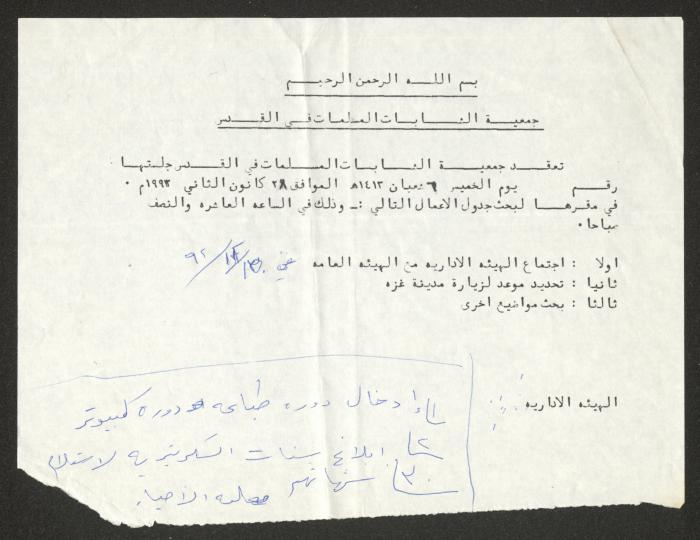 بسم اللـه الرحمن الرحيـم
جمعيـة الشـابـات المسلمات فـي القـدس
تعقـد جمعيـة الشـابـات المسلمات في القـدس جلستهـا
رقـم يوم الخميس ٦ شعبان ١٤١٣هـ الموافق ٢٨ كانون الثاني ١٩٩٣م ٠
في مقرهـا لبحث جدول الاعمال التالي :ـ وذلك في الساعه العاشره والنصف
صباحا٠
اولا : اجتماع الهيئه الاداريه من الهيئه العامه في / / ٩٢
ثانيا : تحديد موعد لزيارة مدينة غزه
ثالثا : بحث مواضيع اخرى
الهيئه الاداريه
١ ادخال دوره طباعه دوره كمبيوتر
٢ ابلاغ بنات السكرتيريه لاستلام
٣ شهاداتهم
الاحياء